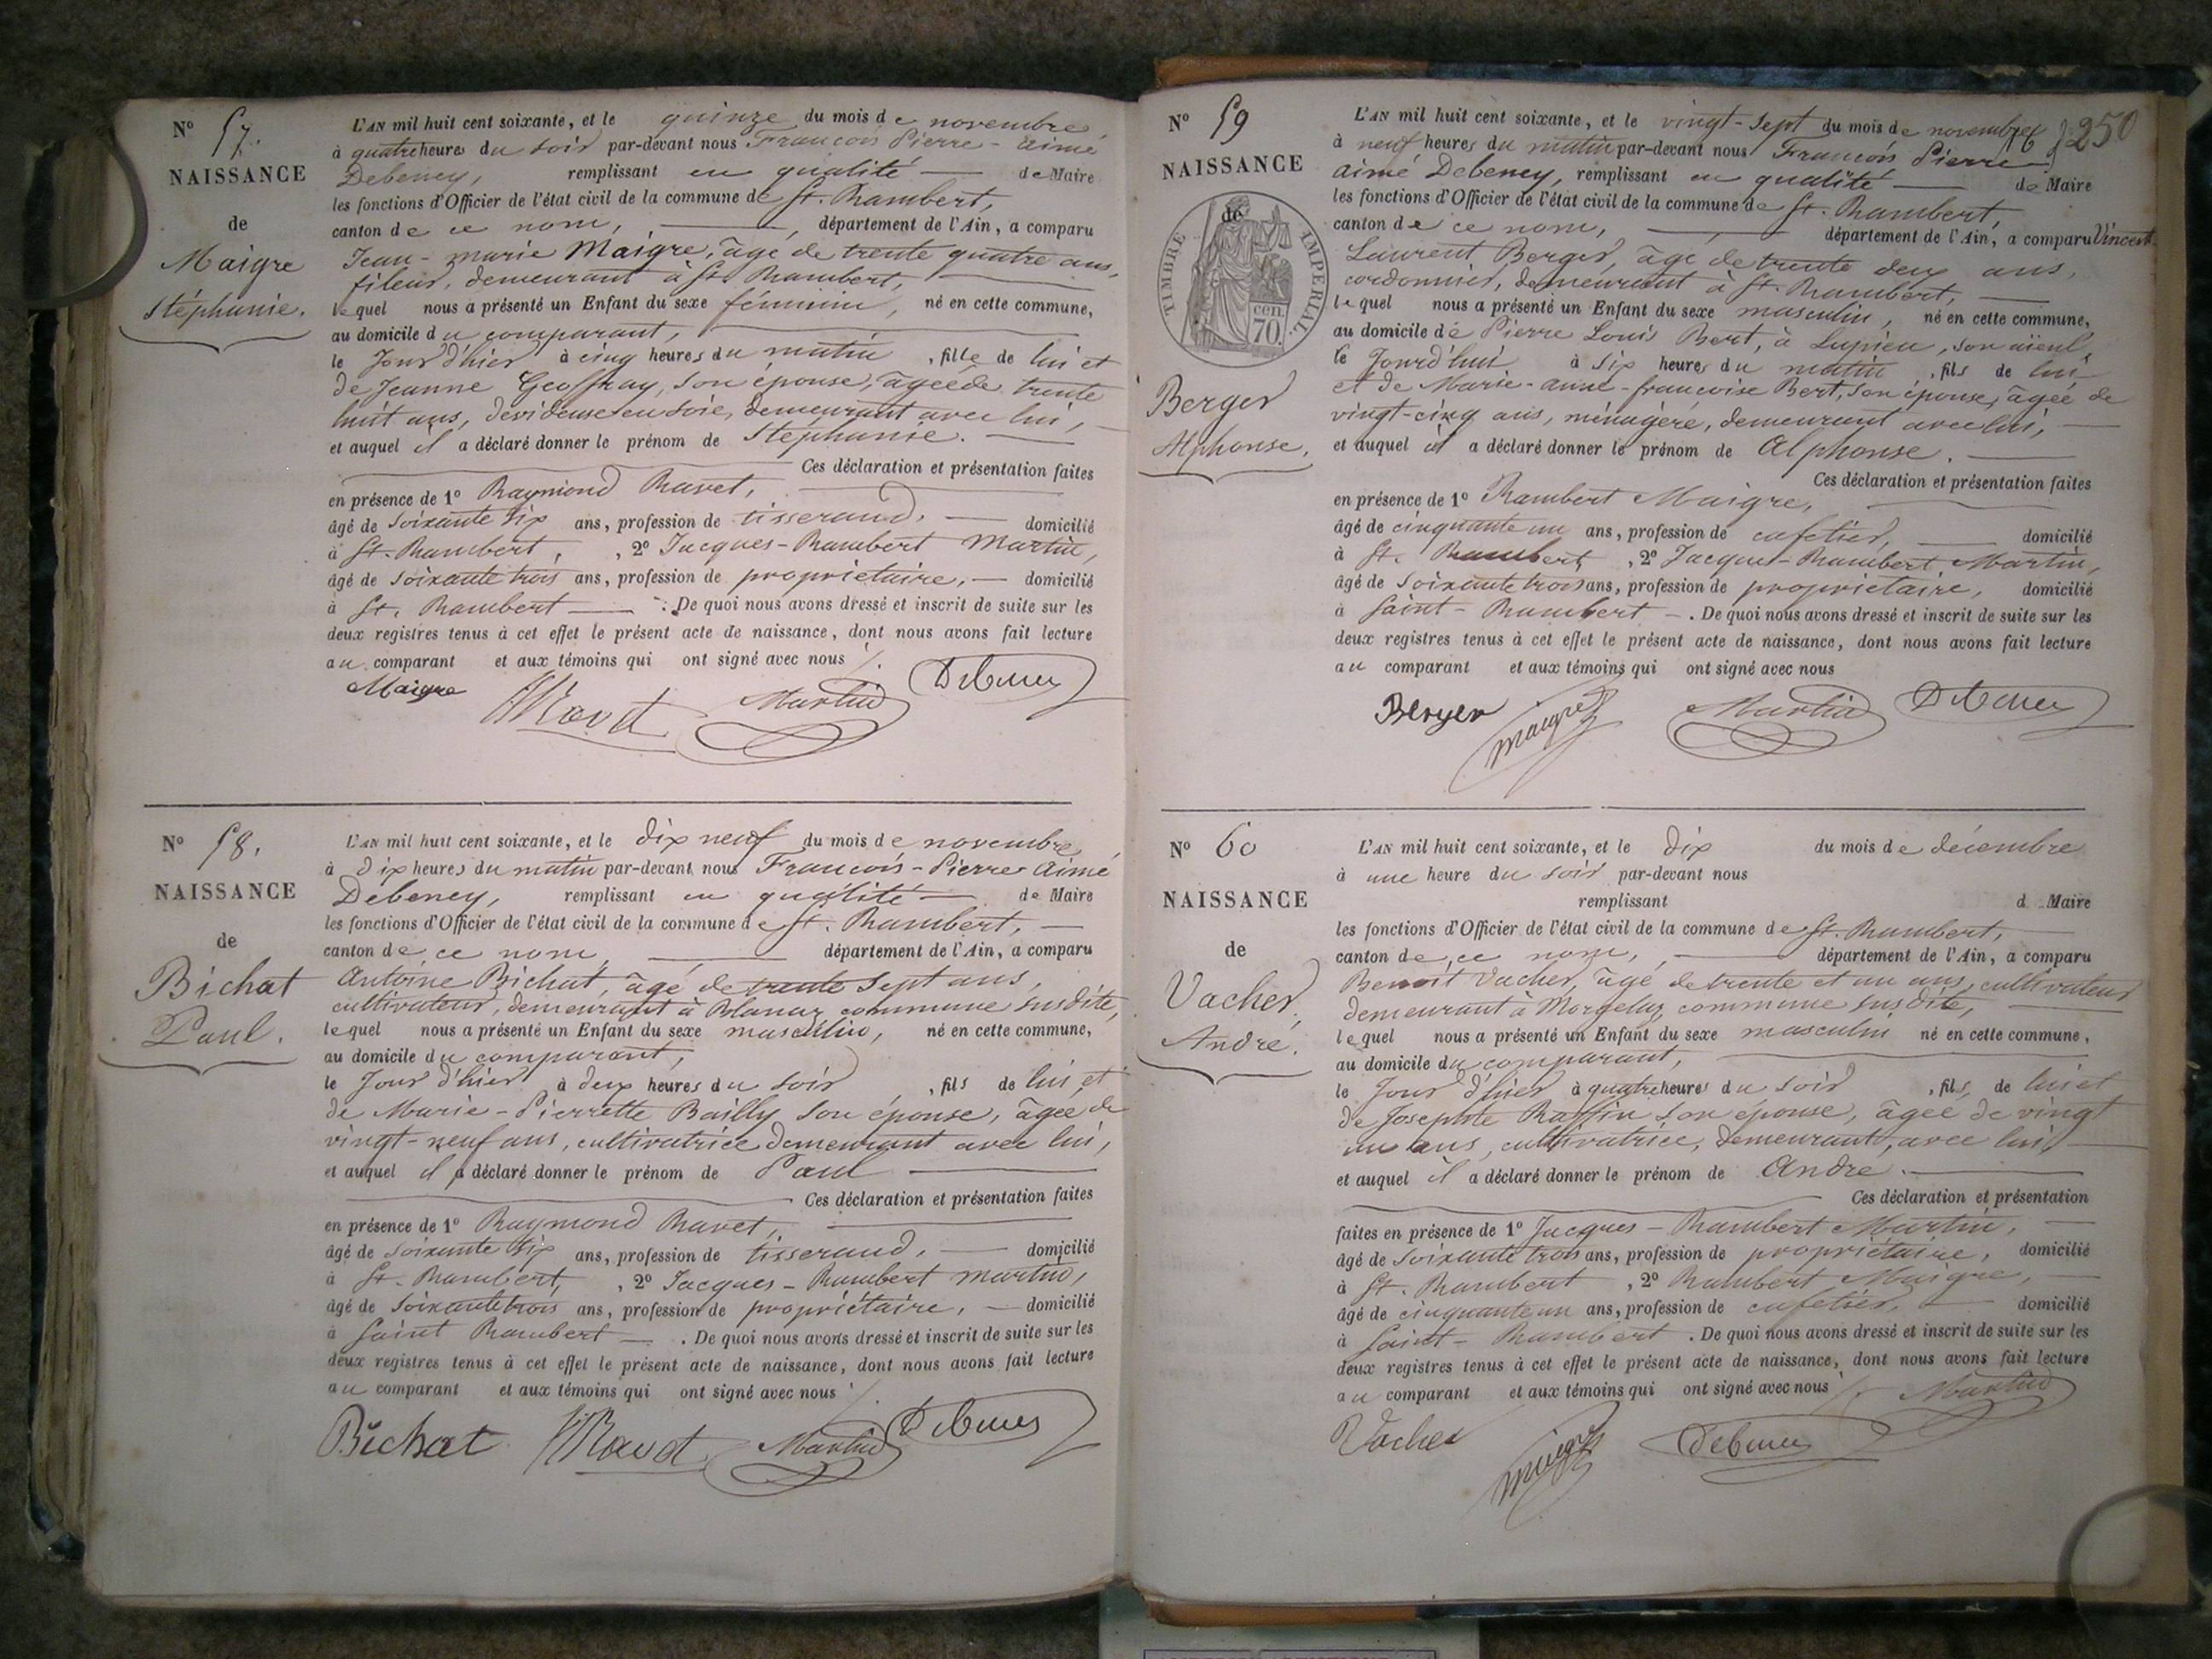 N° 57.
NAISSANCE
de
Maigre
Stéphanie.
L'AN mil huit cent soixante, et le quinze du mois de novembre
à quatre heures du soir par-devant nous François Pierre - aimé
Debeney, remplissant en qualité de Maire
les fonctions d'Officier de l'état civil de la commune de St. Rambert,
canton de ce nom, département de l'Ain, a comparu
Jean-marie Maigre, âgé de trente quatre ans,
fileur, demeurant à St. Rambert,
lequel nous a présenté un Enfant du sexe féminin, né en cette commune,
au domicile du comparant,
le Jour d'hier à cinq heures du matin, fille de lui et
de Jeanne Geoffray, son épouse, âgée de trente
huit ans, dévideuse en soie, demeurant avec lui,
et auquel il a déclaré donner le prénom de Stéphanie.
Ces déclaration et présentation faites
en présence de 1° Raymond Ravet,
âgé de soixante six ans, profession de tisserand, domicilié
à St. Rambert, , 2° Jacques-Rambert Martin,
âgé de soixante trois ans, profession de propriétaire, domicilié
à St. Rambert . De quoi nous avons dressé et inscrit de suite sur les
deux registres tenus à cet effet le présent acte de naissance, dont nous avons fait lecture
au comparant et aux témoins qui ont signé avec nous
Maigre Ravet Martin Debeney
N° 58.
NAISSANCE
de
Bichat
Paul.
L'AN mil huit cent soixante, et le dix neuf du mois de novembre
à dix heures du matin par-devant nous François-Pierre Aimé
Debeney, remplissant en qualité de Maire
les fonctions d'Officier de l'état civil de la commune de St. Rambert,
canton de ce nom, département de l'Ain, a comparu
Antoine Bichat, âgé de trente sept ans,
cultivateur, demeurant à Blanaz commune susdite,
lequel nous a présenté un Enfant du sexe masculin, né en cette commune,
au domicile du comparant,
le Jour d'hier à deux heures du soir, fils de lui, et
de Marie-Pierrette Bailly son épouse, âgée de
vingt-neuf ans, cultivatrice demeurant avec lui,
et auquel il a déclaré donner le prénom de Paul
Ces déclaration et présentation faites
en présence de 1° Raymond Ravet,
âgé de soixante six ans, profession de tisserand, domicilié
à St. Rambert, , 2° Jacques-Rambert martin,
âgé de soixante trois ans, profession de propriétaire, domicilié
à Saint Rambert . De quoi nous avons dressé et inscrit de suite sur les
deux registres tenus à cet effet le présent acte de naissance, dont nous avons fait lecture
au comparant et aux témoins qui ont signé avec nous
Bichat Ravet Martin Debeney
N° 59
NAISSANCE
de
TIMBRE IMPERIAL
70 cen.
Berger
Alphonse.
250
L'AN mil huit cent soixante, et le vingt-sept du mois de novembre
à neuf heures du matin par-devant nous François Pierre
aimé Debeney, remplissant en qualité de Maire
les fonctions d'Officier de l'état civil de la commune de St. Rambert,
canton de ce nom, département de l'Ain, a comparu Vincent
Laurent Berger, âgé de trente deux ans,
cordonnier, demeurant à St. Rambert,
lequel nous a présenté un Enfant du sexe masculin, né en cette commune,
au domicile de Pierre Louis Bert, à Lupieu, son aïeul,
le Jourd'hui à six heures du matin, fils de lui
et de Marie-anne-françoise Bert, son épouse, âgée de
vingt-cinq ans, ménagère, demeurant avec lui,
et auquel il a déclaré donner le prénom de Alphonse.
Ces déclaration et présentation faites
en présence de 1° Rambert Maigre,
âgé de cinquante un ans, profession de cafetier, domicilié
à St. Rambert , 2° Jacques-Rambert Martin,
âgé de soixante trois ans, profession de propriétaire, domicilié
à Saint-Rambert . De quoi nous avons dressé et inscrit de suite sur les
deux registres tenus à cet effet le présent acte de naissance, dont nous avons fait lecture
au comparant et aux témoins qui ont signé avec nous
Berger maigre Martin Debeney
N° 60
NAISSANCE
de
Vacher,
André.
L'AN mil huit cent soixante, et le dix du mois de décembre
à une heure du soir par-devant nous
remplissant d Maire
les fonctions d'Officier de l'état civil de la commune de St. Rambert,
canton de ce nom, département de l'Ain, a comparu
Benoit Vacher, âgé de trente et un ans, cultivateur
demeurant à Morgeluz commune susdite,
lequel nous a présenté un Enfant du sexe masculin né en cette commune,
au domicile du comparant,
le Jour d'hier à quatre heures du soir, fils de lui et
de Josephte Raffin son épouse, âgée de vingt
un ans, cultivatrice, demeurant avec lui,
et auquel il a déclaré donner le prénom de André.
Ces déclaration et présentation
faites en présence de 1° Jacques-Rambert Martin,
âgé de soixante trois ans, profession de propriétaire, domicilié
à St. Rambert , 2° Rambert Maigre,
âgé de cinquante un ans, profession de cafetier, domicilié
à Saint-Rambert . De quoi nous avons dressé et inscrit de suite sur les
deux registres tenus à cet effet le présent acte de naissance, dont nous avons fait lecture
au comparant et aux témoins qui ont signé avec nous
Martin
Vacher maigre Debeney